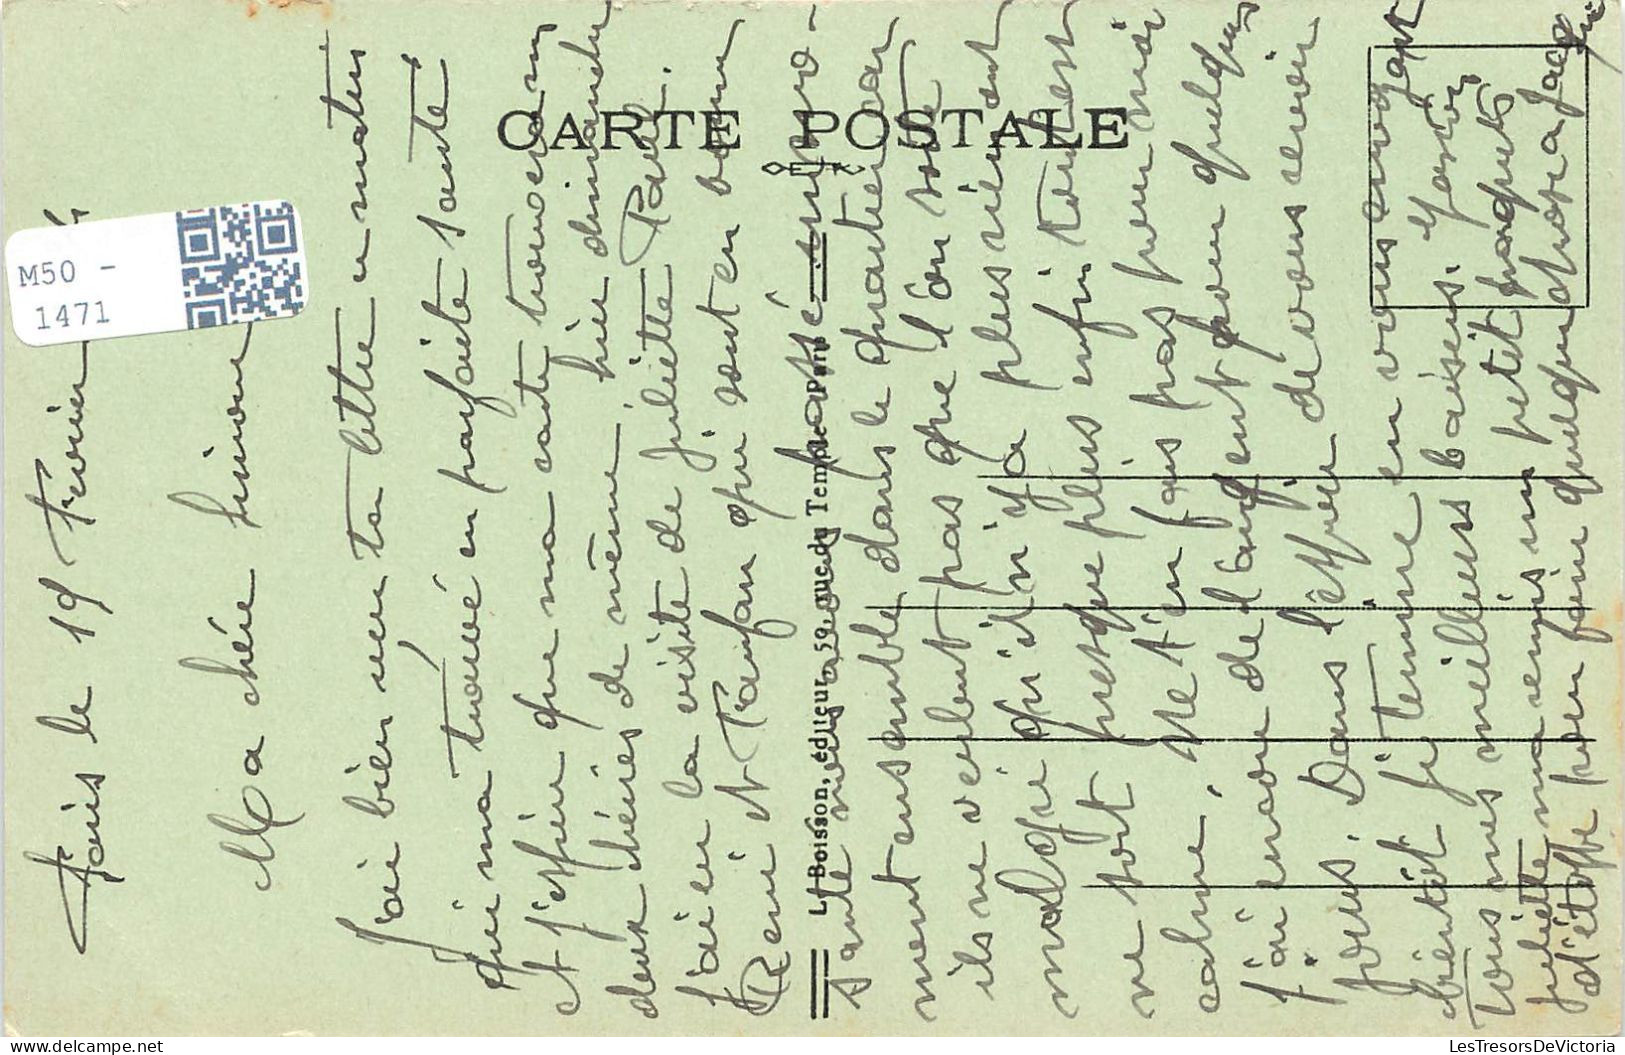 CARTE POSTALE
L. Boisson, éditeur, 59, rue du Temple, Paris
M50 -
1471
Paris le 19 Février
Ma chère Simone
J'ai bien reçu ta lettre un matin
qui m'a trouvé en parfaite santé
et j'espère que ma carte trouvera mes
deux chéries de même. hier dimanche
j'ai eu la visite de Juliette Paul
René et Fanfan qui sont en bonne
santé nous avons passé un mo-
ment ensemble dans le quartier car
ils ne veulent pas que l'on sorte
malgré qu'il n'y a plus rien et
ne sort presque plus enfin tout est
calme. Ne t'en fais pas pour moi
j'ai encore de l'argent pour quelques
jours. Dans l'espoir de vous revoir
bientôt je termine en vous envoyant
tous mes meilleurs baisers. Gaston
Juliette m'a remis un petit paquet
d'étoffe pour faire quelque chose a Jacqui
LesTresorsDeVictoria